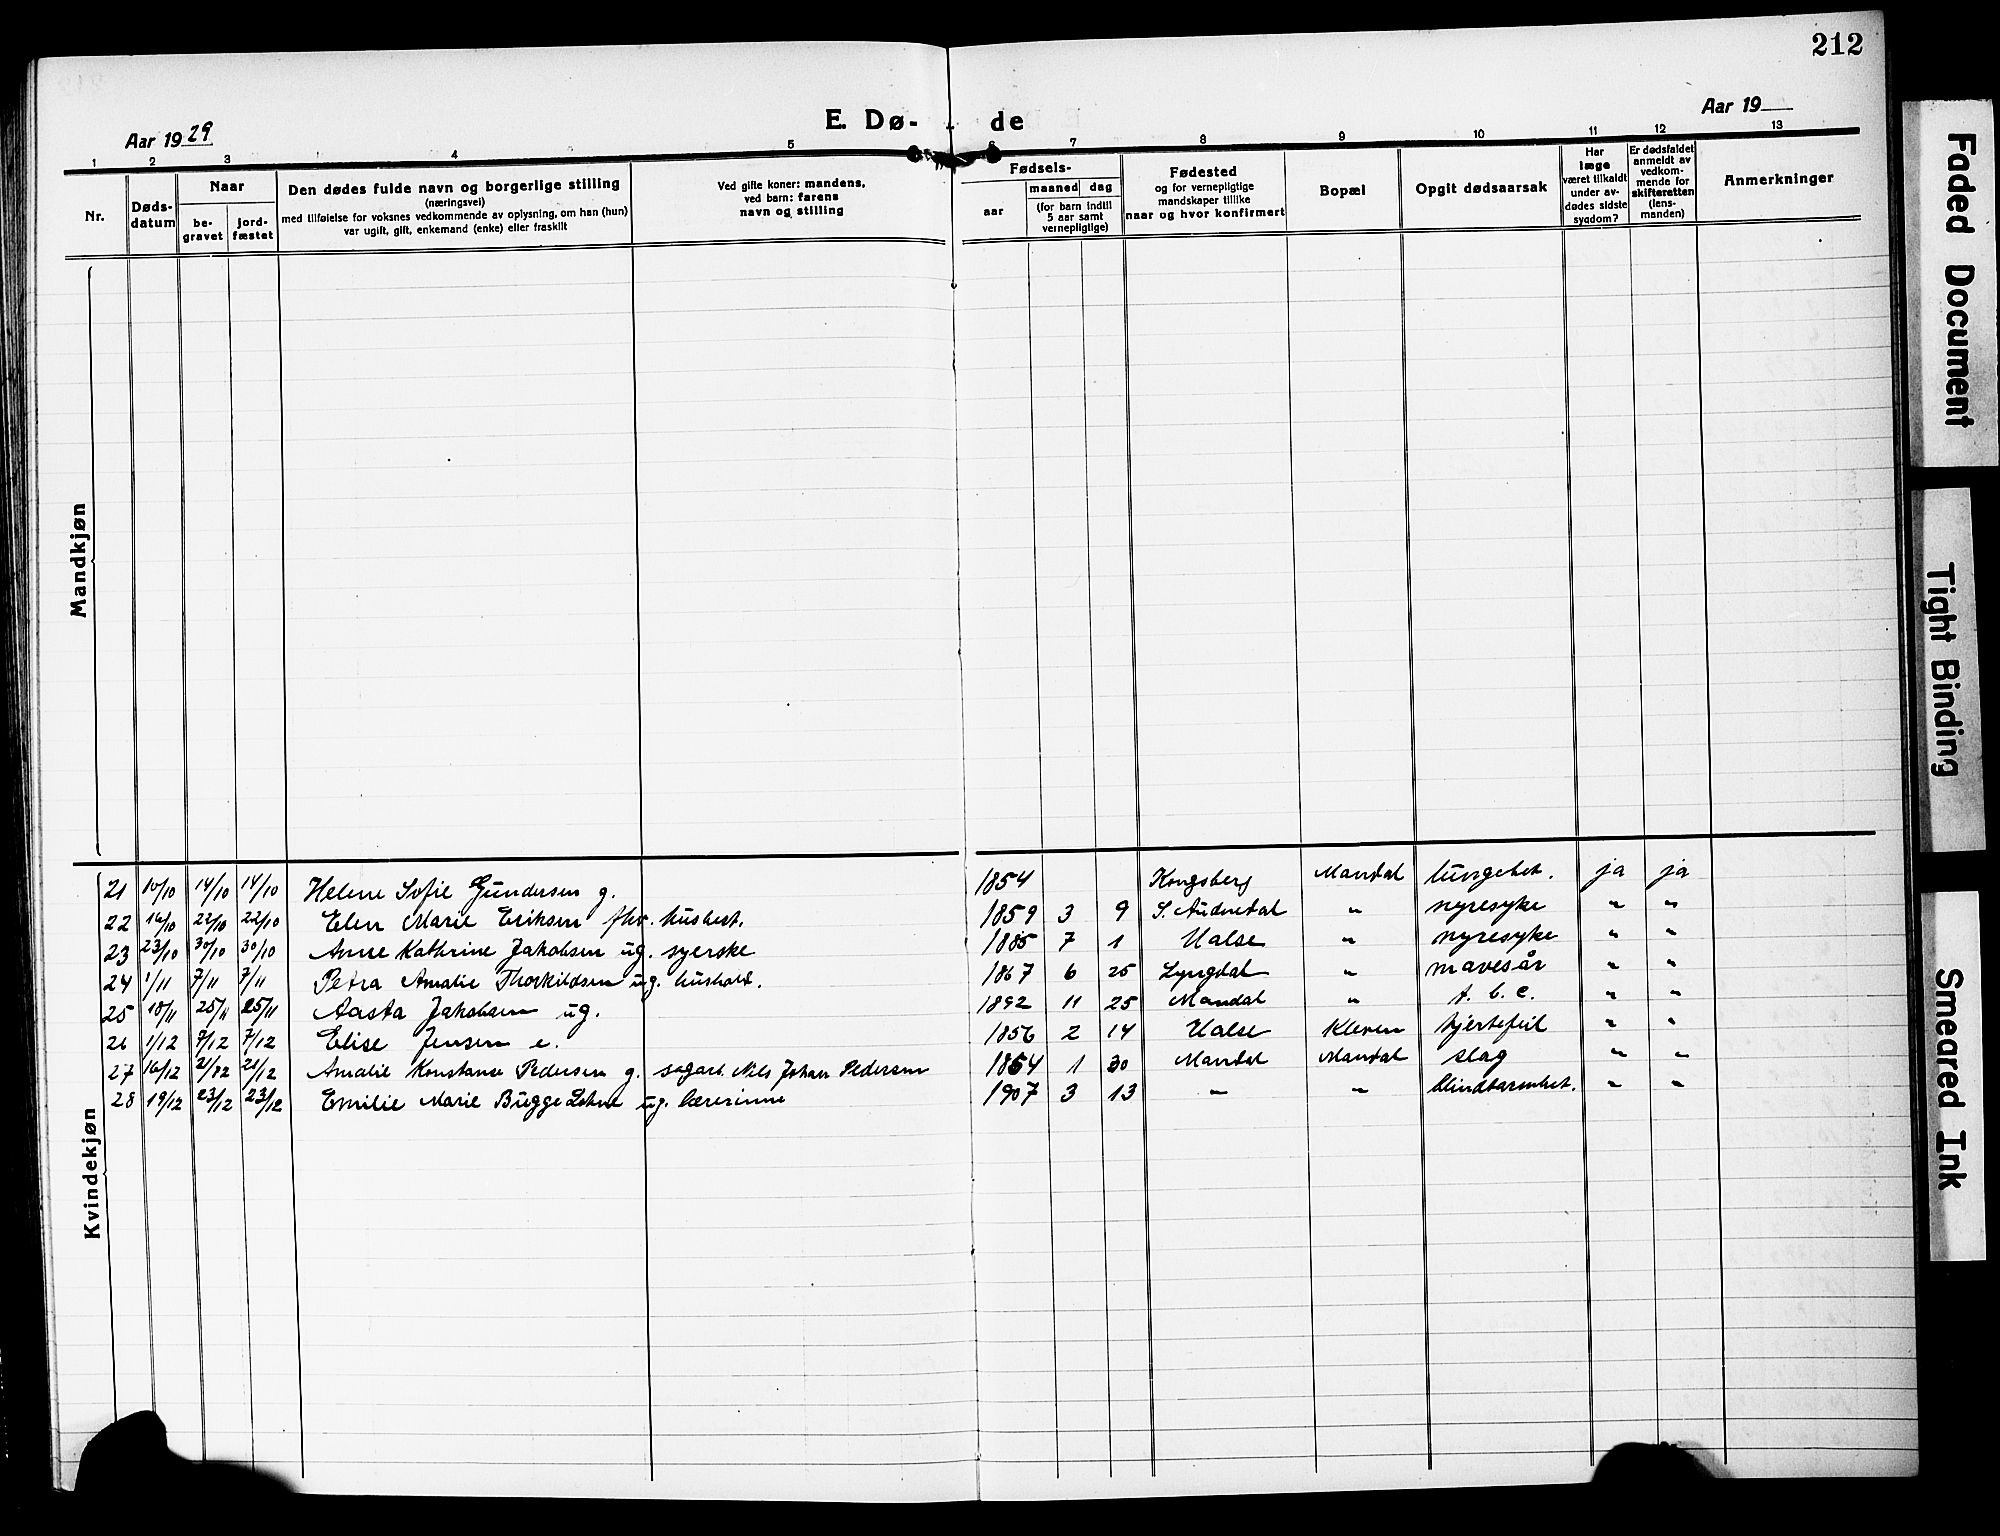 212
Aar 1929
E. Dø-
de
Aar 19
1 2 3 4 5 6 7 8 9 10 11 12 13
Nr.
Døds-
datum
Naar
be-
gravet
jord-
fæstet
Den dødes fulde navn og borgerlige stilling
(næringsvei)
med tilføielse for voksnes vedkommende av oplysning, om han (hun)
var ugift, gift, enkemand (enke) eller fraskilt
Ved gifte koner: mandens,
ved barn: farens
navn og stilling
Fødsels-
aar
maaned dag
(for barn indtil
5 aar samt
vernepligtige)
Fødested
og for vernepligtige
mandskaper tillike
naar og hvor konfirmert
Bopæl
Opgit dødsaarsak
Har
læge
været tilkaldt
under av-
dødes sidste
sygdom?
Er dødsfaldet
anmeldt av
vedkom-
mende for
skifteretten
(lens-
manden)
Anmerkninger
Mandkjøn
Kvindekjøn
21 10/10 14/10 14/10 Helene Sofie Gundersen g. 1854 Kongsberg Mandal lungebet. ja ja
22 16/10 22/10 22/10 Elen Marie Eriksen fhv. husbest. 1859 3 9 S. Audnedal " nyresyke " "
23 23/10 30/10 30/10 Anne Kathrine Jakobsen ug. syerske 1885 7 1 Halse " nyresyke " "
24 1/11 7/11 7/11 Petra Amalie Thorkildsen ug. hushold. 1867 6 25 Lyngdal " mavesår " "
25 18/11 25/11 25/11 Aasta Jakobsen ug. 1892 11 25 Mandal " t. b. c. " "
26 1/12 7/12 7/12 Elise Jensen e. 1856 2 14 Halse Kleven hjertefeil " "
27 16/12 21/12 21/12 Amalie Konstanse Pedersen g. sagarb. Nils Johan Pedersen 1854 1 30 Mandal Mandal slag " "
28 19/12 23/12 23/12 Emilie Marie Bugge ug. lærerinne 1907 3 13 " " blindtarmbet. " "
Faded Document
Tight Binding
Smeared Ink